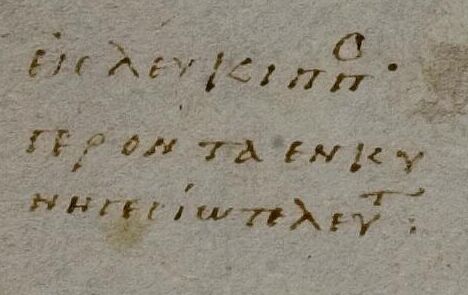 εἰς λευκιππο·
γεροντα εν κυ
νηγεσίω τελευτ: